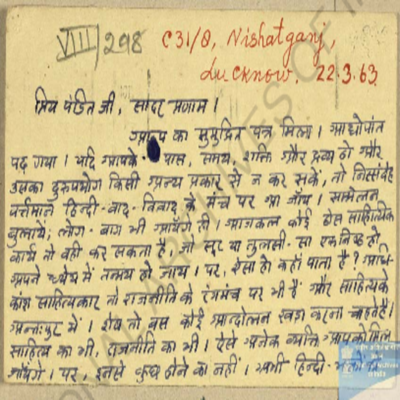 VIII/298
C31/8, Nishatganj,
Lucknow. 22.3.63
प्रिय पंडित जी, सादर प्रणाम।
आप का सुमुद्रित पत्र मिला। आद्योपांत
पढ़ गया। यदि आपके पास, समय, शक्ति और द्रव्य हो और
उसका दुरुपयोग किसी अन्य प्रकार से न कर सकें, तो निस्संदेह
वर्त्तमान हिन्दी-वाद-विवाद के मंच पर आ जाँय। सम्मेलन
बुलाये; लोग-बाग भी आयेंगे ही। आजकल कोई ठोस साहित्यिक
कार्य तो वही कर सकता है, जो सूर या तुलसी-सा एकनिष्ठ हो
अपने ध्येय में तन्मय हो जाय। पर, ऐसा हो कहाँ पाता है?
साहित्यकार तो राजनीति के रंगमंच पर भी हैं और साहित्य के
अन्तःपुर में। शेष तो बस कोई आन्दोलन खड़ा करना चाहते हैं।
साहित्य का भी, राजनीति का भी। ऐसे अनेक व्यक्ति आपको मिल
जायेंगे। पर, इनसे कुछ होने का नहीं। अभी हिन्दी-